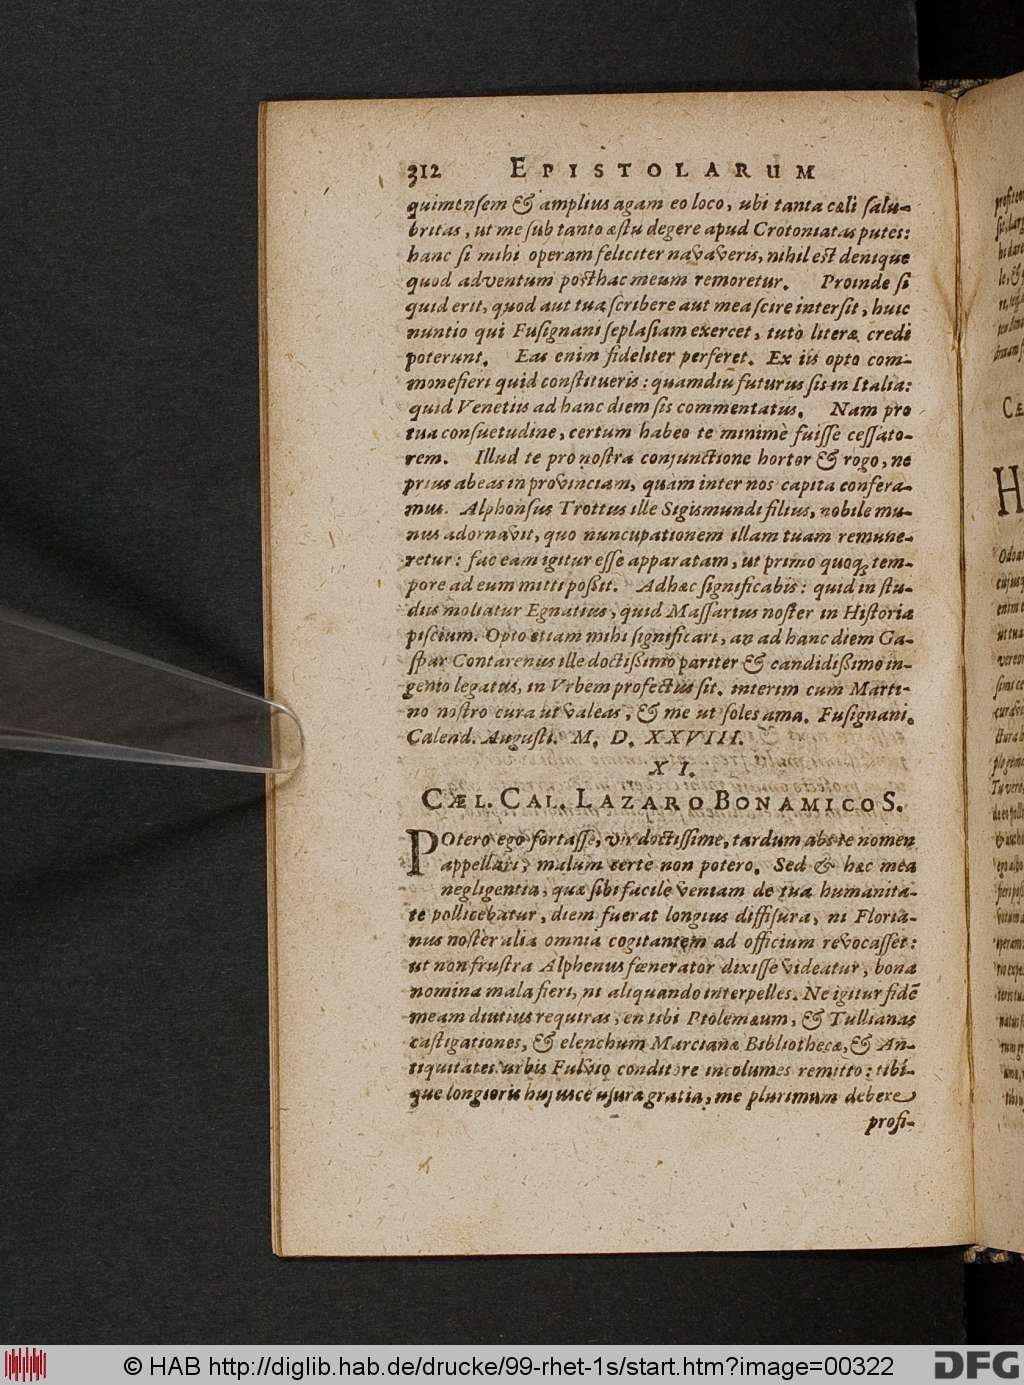 312 EPISTOLARUM
quimensem & amplius agam eo loco, ubi tanta cæli salu-
britas, ut me sub tanto æstu degere apud Crotoniatas putes:
hanc si mihi operam feliciter navaveris, nihil est denique
quod adventum posthac meum remoretur. Proinde si
quid erit, quod aut tua scribere aut mea scire intersit, huic
nuntio qui Fusignani seplasiam exercet, tutò literæ credi
poterunt. Eas enim fideliter perferet. Ex iis opto com-
monefieri quid constitueris: quamdiu futurus sis in Italia:
quid Venetiis ad hanc diem sis commentatus. Nam pro
tua consuetudine, certum habeo te minimè fuisse cessato-
rem. Illud te pro nostra conjunctione hortor & rogo, ne
prius abeas in provinciam, quàm inter nos capita confera-
mus. Alphonsus Trottus ille Sigismundi filius, nobile mu-
nus adornavit, quo nuncupationem illam tuam remune-
retur: fac eam igitur esse apparatam, ut primo quoq; tem-
pore ad eum mitti poßit. Ad hæc significabis: quid in stu-
diis moliatur Egnatius, quid Massarius noster in Historia
piscium. Opto etiam mihi significari, an ad hanc diem Ga-
spar Contarenus ille doctißimo pariter & candidißimo in-
genio legatus, in Vrbem profectus sit. interim cum Marti-
no nostro cura ut valeas, & me ut soles ama. Fusignani.
Calend. Augusti. M. D. XXVIII.
XI.
CÆL. CAL. LAZARO BONAMICO S.
POtero ego fortasse, vir doctissime, tardum abs te nomen
appellari, malum certè non potero. Sed & hæc mea
negligentia, quæ sibi facilè veniam de tua humanita-
te pollicebatur, diem fuerat longius diffisura, ni Floria-
nus noster alia omnia cogitantem ad officium revocasset:
ut non frustra Alphenus fœnerator dixisse videatur, bona
nomina mala fieri, ni aliquando interpelles. Ne igitur fidē
meam diutius requiras, en tibi Ptolemæum, & Tullianas
castigationes, & elenchum Marcianæ Bibliothecæ, & An-
tiquitates urbis Fulvio conditore incolumes remitto: tibi-
que longioris hujusce usuræ gratia, me plurimum debere
profi-
© HAB http://diglib.hab.de/drucke/99-rhet-1s/start.htm?image=00322
DFG